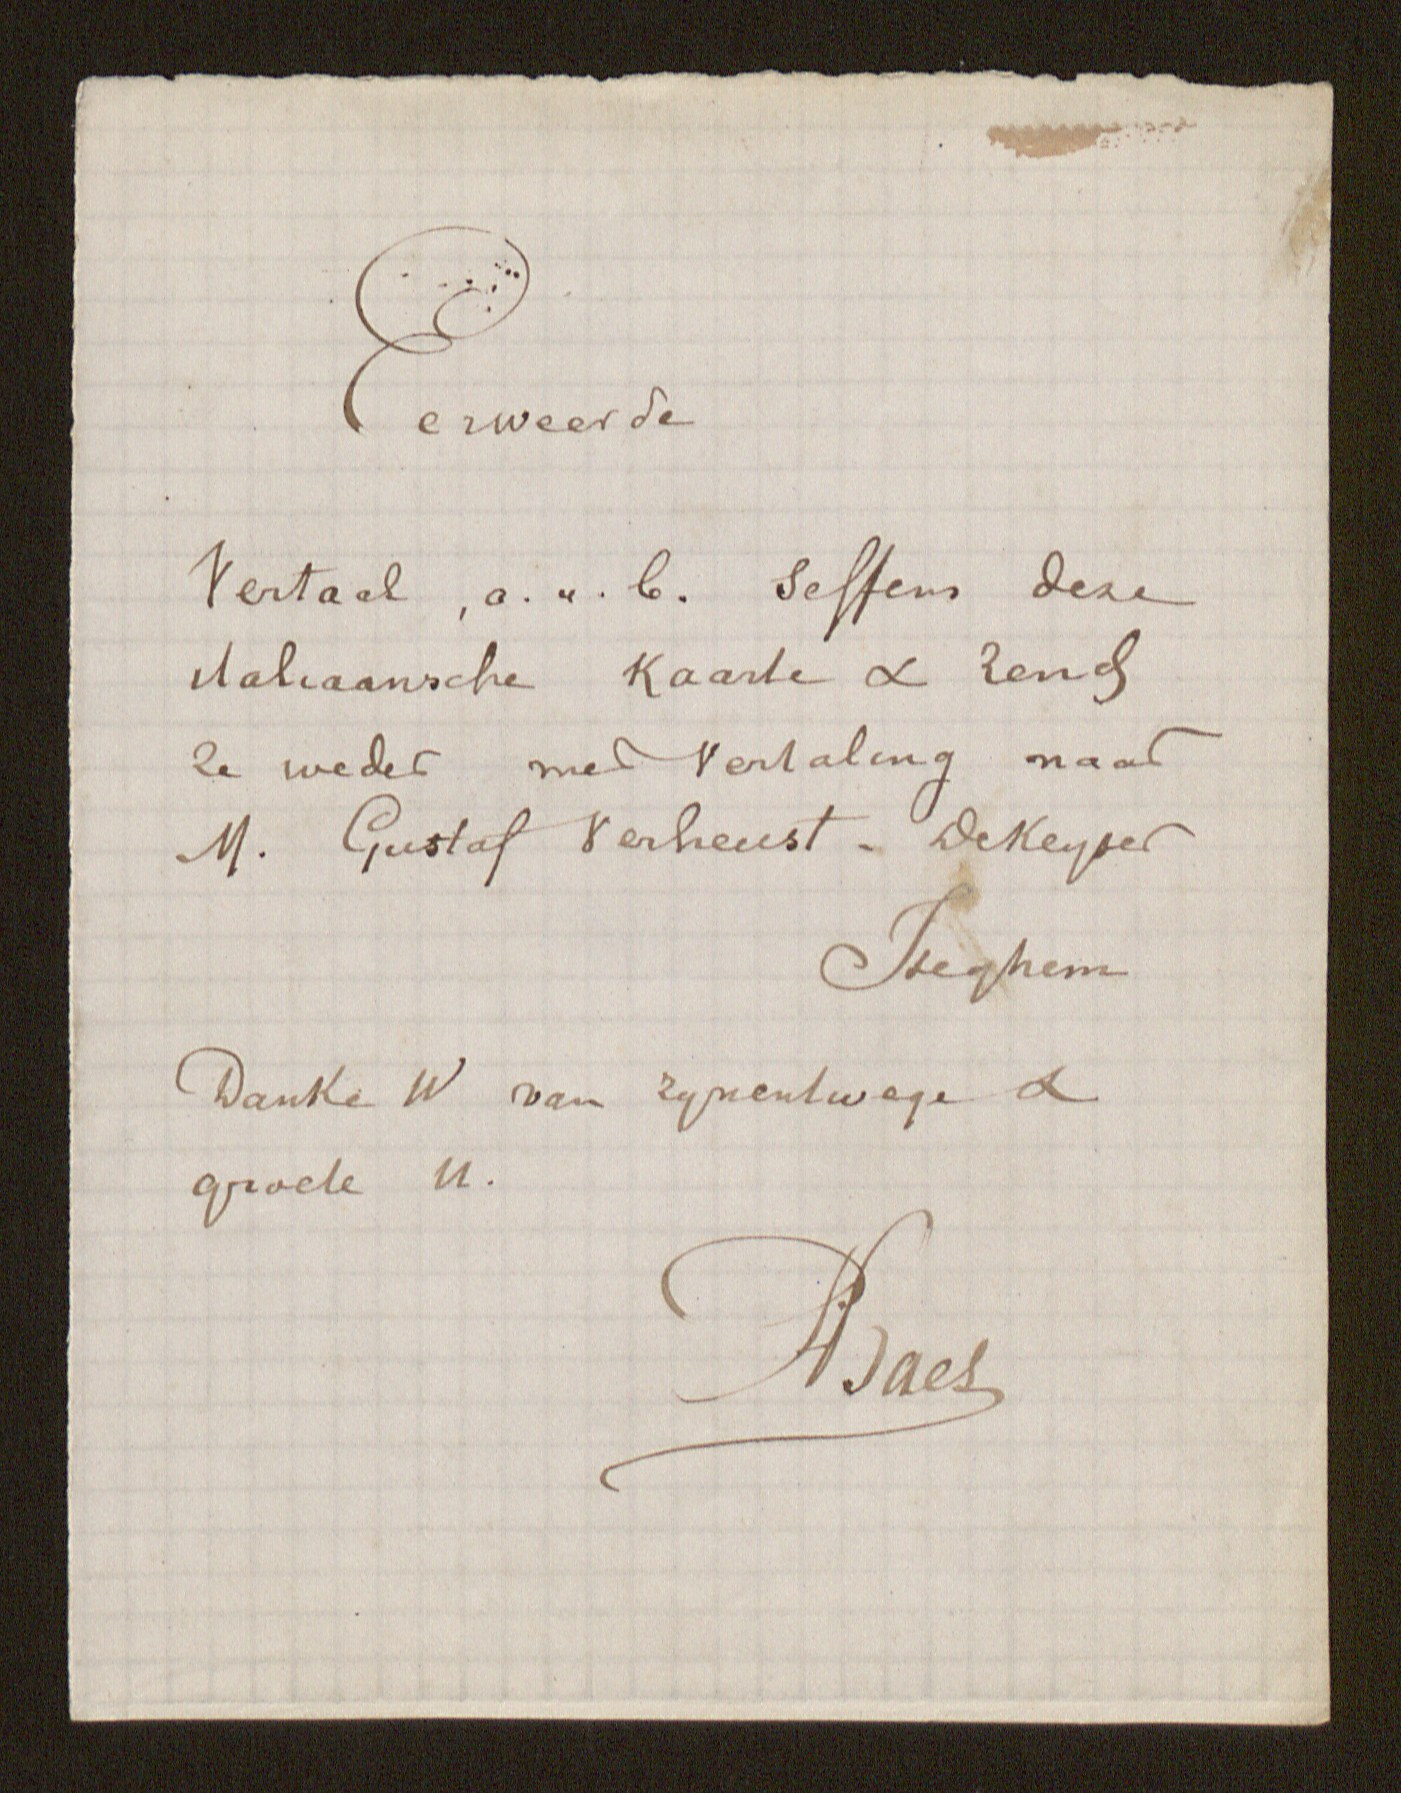 Eerweerde
Vertaal, a. u. b. seffens deze
italiaansche kaarte & zend
ze weder met vertaling naar
M. Gustaf Verheust - DeKeyser
Iseghem
Danke U van zynentwege &
groete U.
ABaes